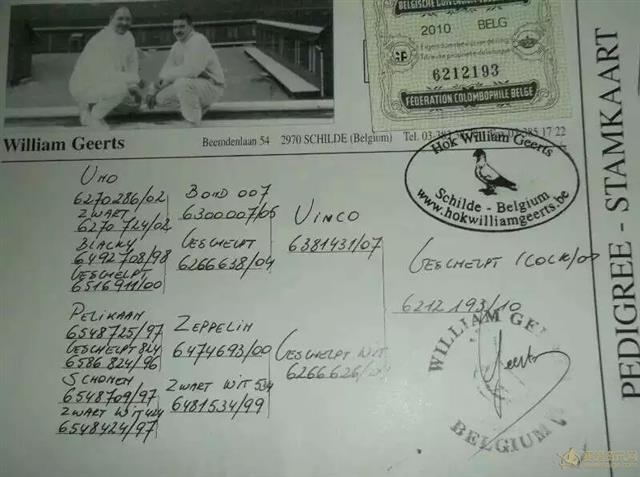 BELGISCHE
2010 BELG
6212193
FEDERATION COLOMBOPHILE BELGE
William Geerts
Beemdenlaan 54 2970 SCHILDE (Belgium) Tel. 03.385.17 22
Hok William Geerts
Schilde - Belgium
www.hokwilliamgeerts.be
PEDIGREE - STAMKAART
UNO
6270286/02
ZWART
6270724/02
BLACKY
6492708/98
GESCHELPT
6516911/00
PELIKAAN
6548725/97
GESCHELPT 824
6586824/96
SCHONEN
6548709/97
ZWART WIT 424
6548424/97
BOND 007
6300007/05
GESCHELPT
6266638/04
ZEPPELIN
6474693/00
ZWART WIT 534
6481534/99
VINCO
6381431/07
GESCHELPT WIT
6266626/
GESCHELPT
6212193/10
WILLIAM
Geerts
BELGIUM